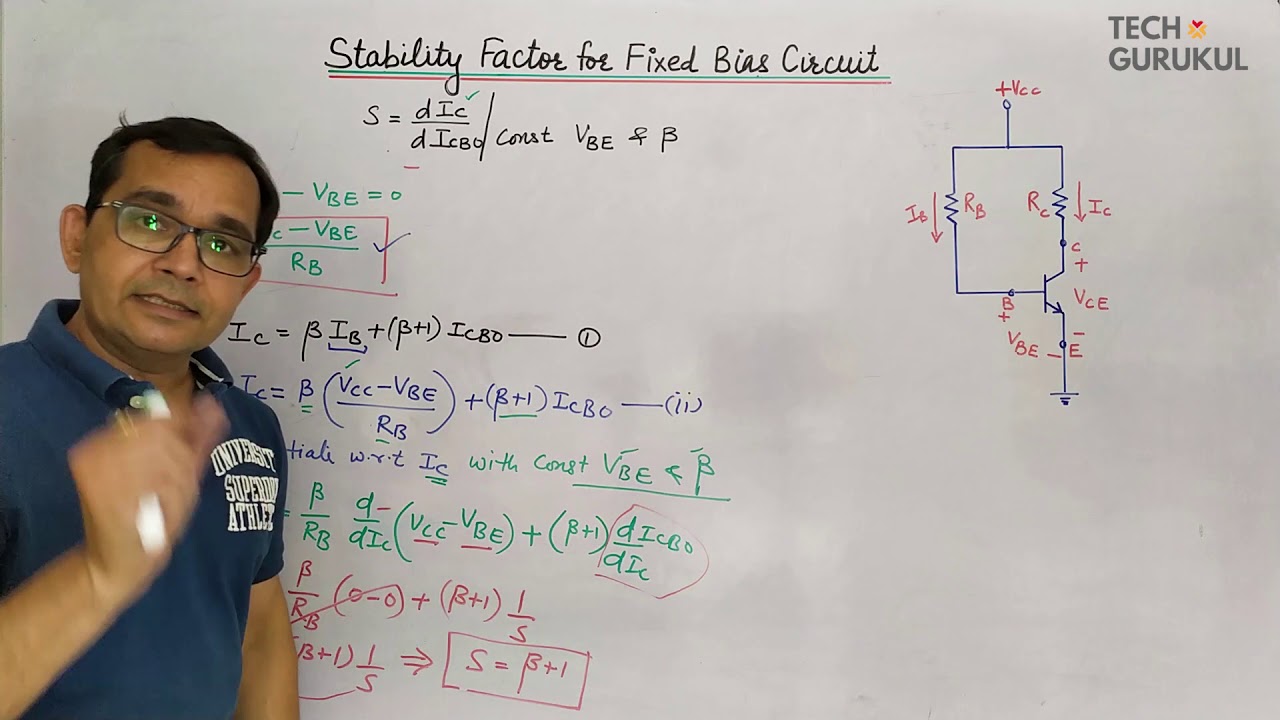 TECH
GURUKUL
Stability Factor for Fixed Bias Circuit
S = dIc/dICBO | Const VBE & β
- VBE = 0
c - VBE
RB
Ic = β IB + (β+1) ICBO —— ①
Ic = β (VCC - VBE / RB) + (β+1) ICBO —— (ii)
tiate w.r.t Ic with Const VBE & β
= β/RB d/dIc (VCC - VBE) + (β+1) dICBO/dIc
β/RB (0-0) + (β+1) 1/S
β+1) 1/S ⇒ S = β+1
+VCC
IB
RB
RC
IC
C
+
B
+
VCE
VBE
-
-
E
UNIVERSIT
SUPERDR
ATHLET